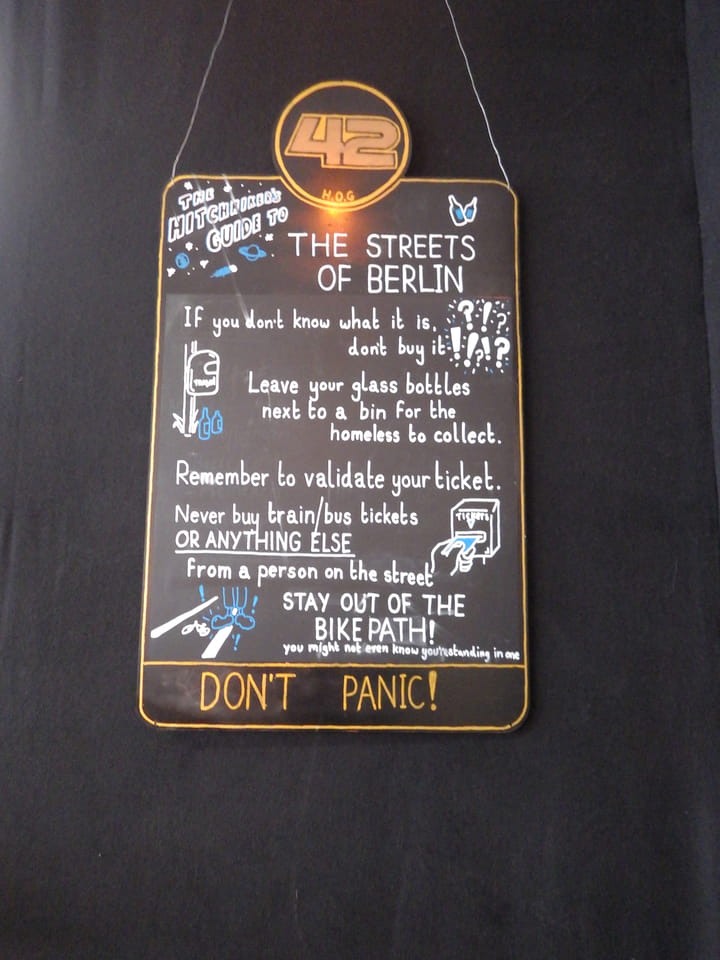 42
H.O.G
THE
HITCHHIKER'S
GUIDE TO
THE STREETS
OF BERLIN
If you don't know what it is,
don't buy it
?!?
!!?!?
TRASH
Leave your glass bottles
next to a bin for the
homeless to collect.
Remember to validate your ticket.
Never buy train/bus tickets
OR ANYTHING ELSE
from a person on the street
TICKETS
STAY OUT OF THE
BIKE PATH!
you might not even know you're standing in one
DON'T PANIC!